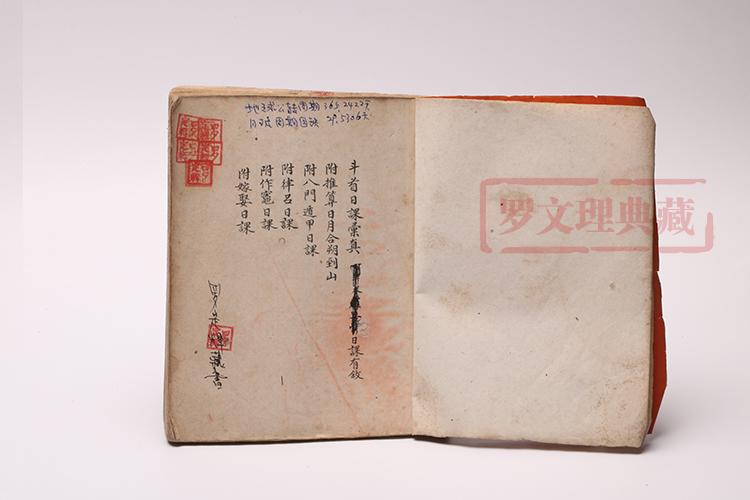 地球公转周期 365.2422天
月球周期因缺 29.5306天
斗首日課彙真
日課有效
附推算日月合朔到山
附八門遁甲日課
附律呂日課
附作竈日課
附嫁娶日課
罗文理典藏